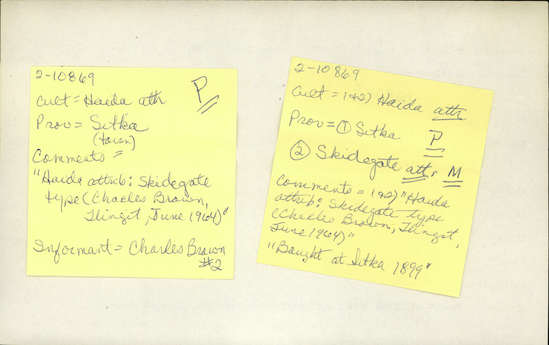 2-10869
Cult = Haida attr P
Prov = Sitka
(town)
Comments =
"Haida attrib: Skidegate
type (Charles Brown,
Tlingit, June 1964)"
Informant = Charles Brown
#2
2-10869
Cult = 1+2) Haida attr
Prov = ① Sitka P
② Skidegate attr M
Comments = 1+2) "Haida
attrib: Skidegate type
(Charles Brown, Tlingit,
June 1964)"
"Bought at Sitka 1899"